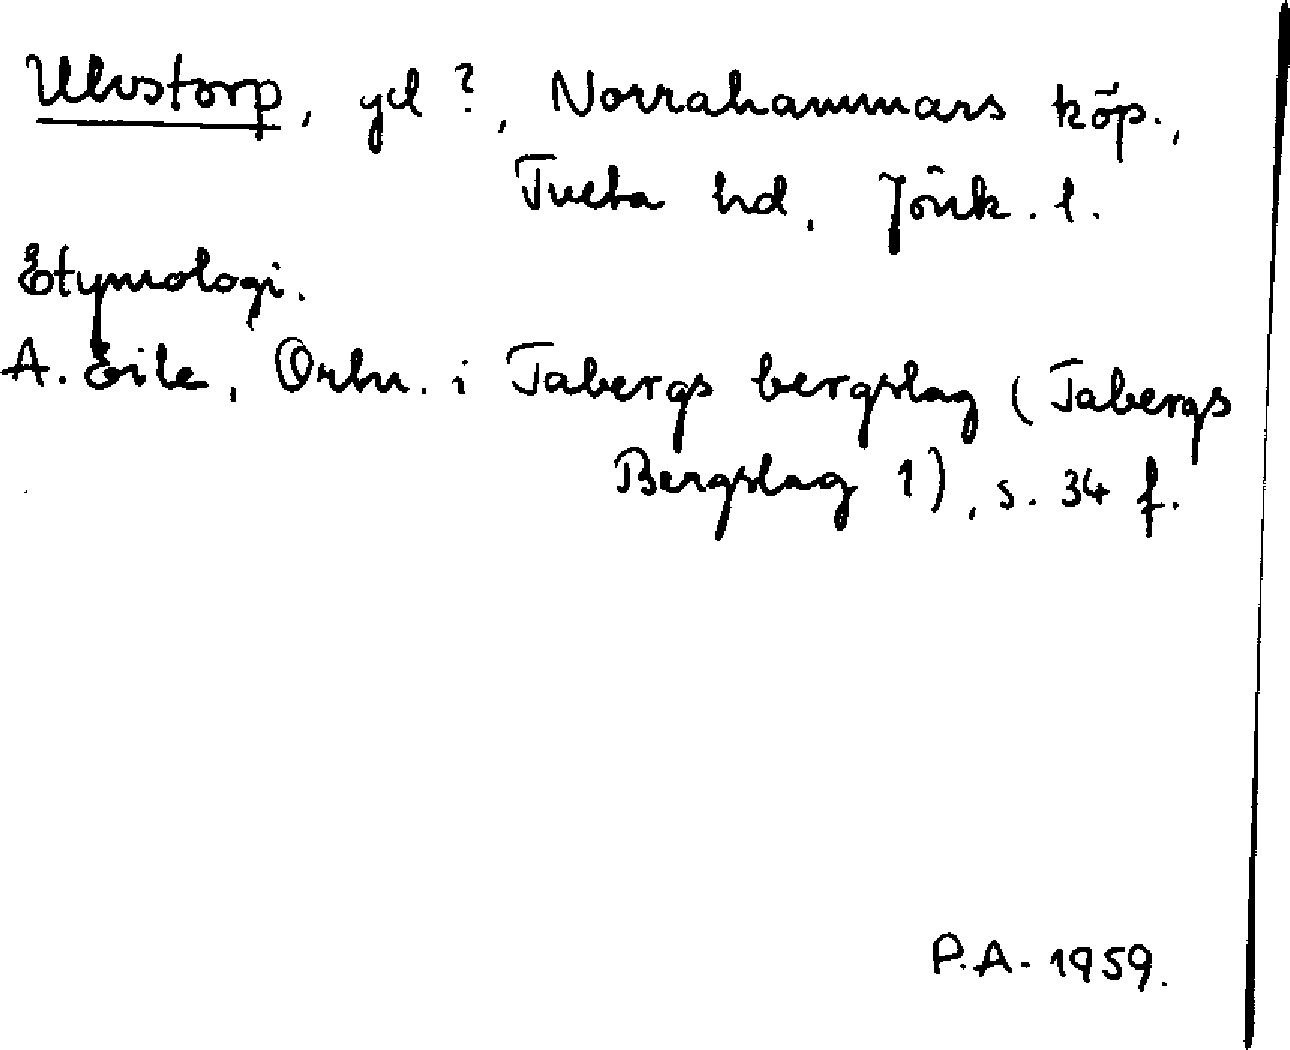 Ulvstorp, gd ?, Norrahammars köp.,
Tveta hd, Jönk. l.
Etymologi.
A. Eile, Ortn. i Tabergs bergslag (Tabergs
Bergslag 1), s. 34 f.
P.A. 1959.